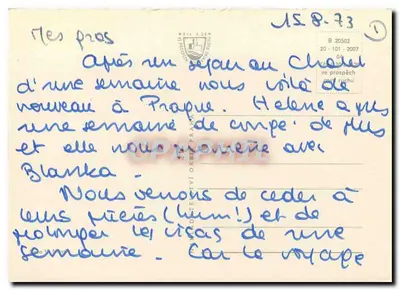 15-8-73
1
Mes gros
B 20502
20-101-2007
Après un séjour au Chalet
d'une semaine nous voilà de
nouveau à Prague. Helene a pris
une semaine de congé de plus
et elle nous promène avec
Blanka.
Nous venons de ceder à
leurs prières (hum!) et de
prolonger les visas de une
semaine. Car le voyage